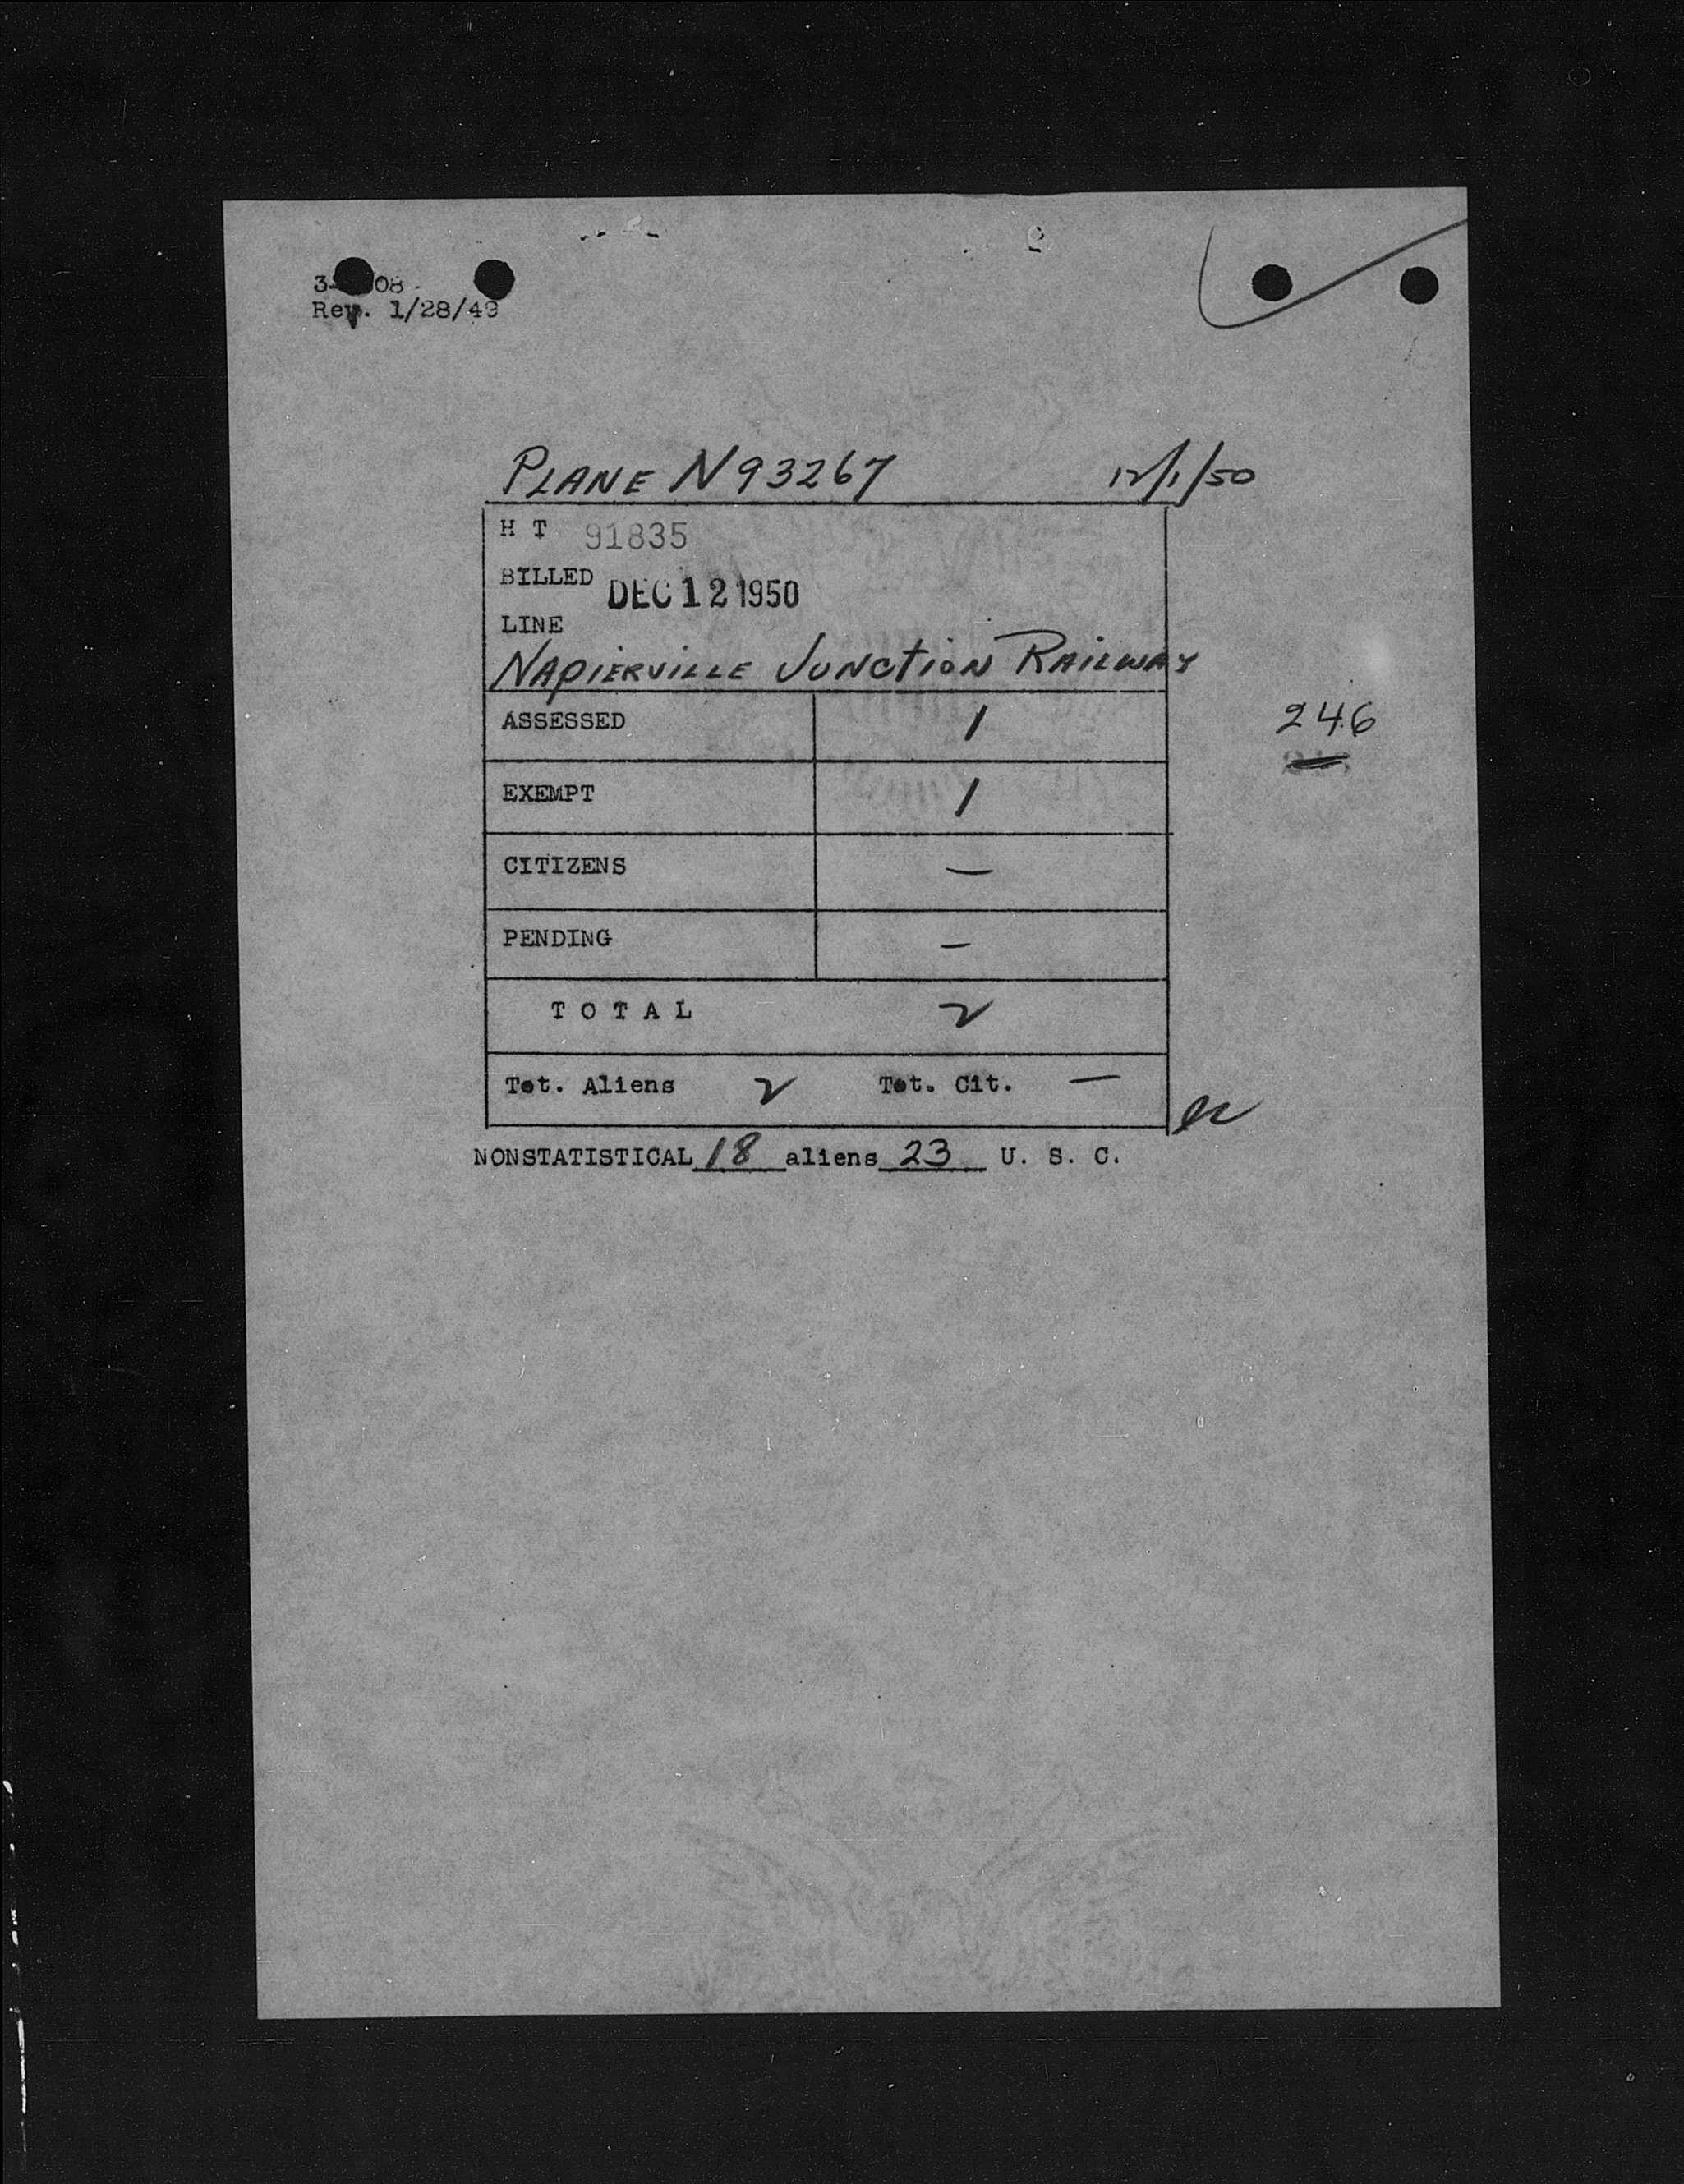 Rev. 1/28/49
PLANE N93267 12/1/50
H T 91835
BILLED DEC 12 1950
LINE
NAPIERVILLE JUNCTION RAILWAY
ASSESSED 1
246
EXEMPT 1
CITIZENS —
PENDING –
TOTAL 2
Tot. Aliens 2 Tot. Cit. —
NONSTATISTICAL 18 aliens 23 U. S. C.